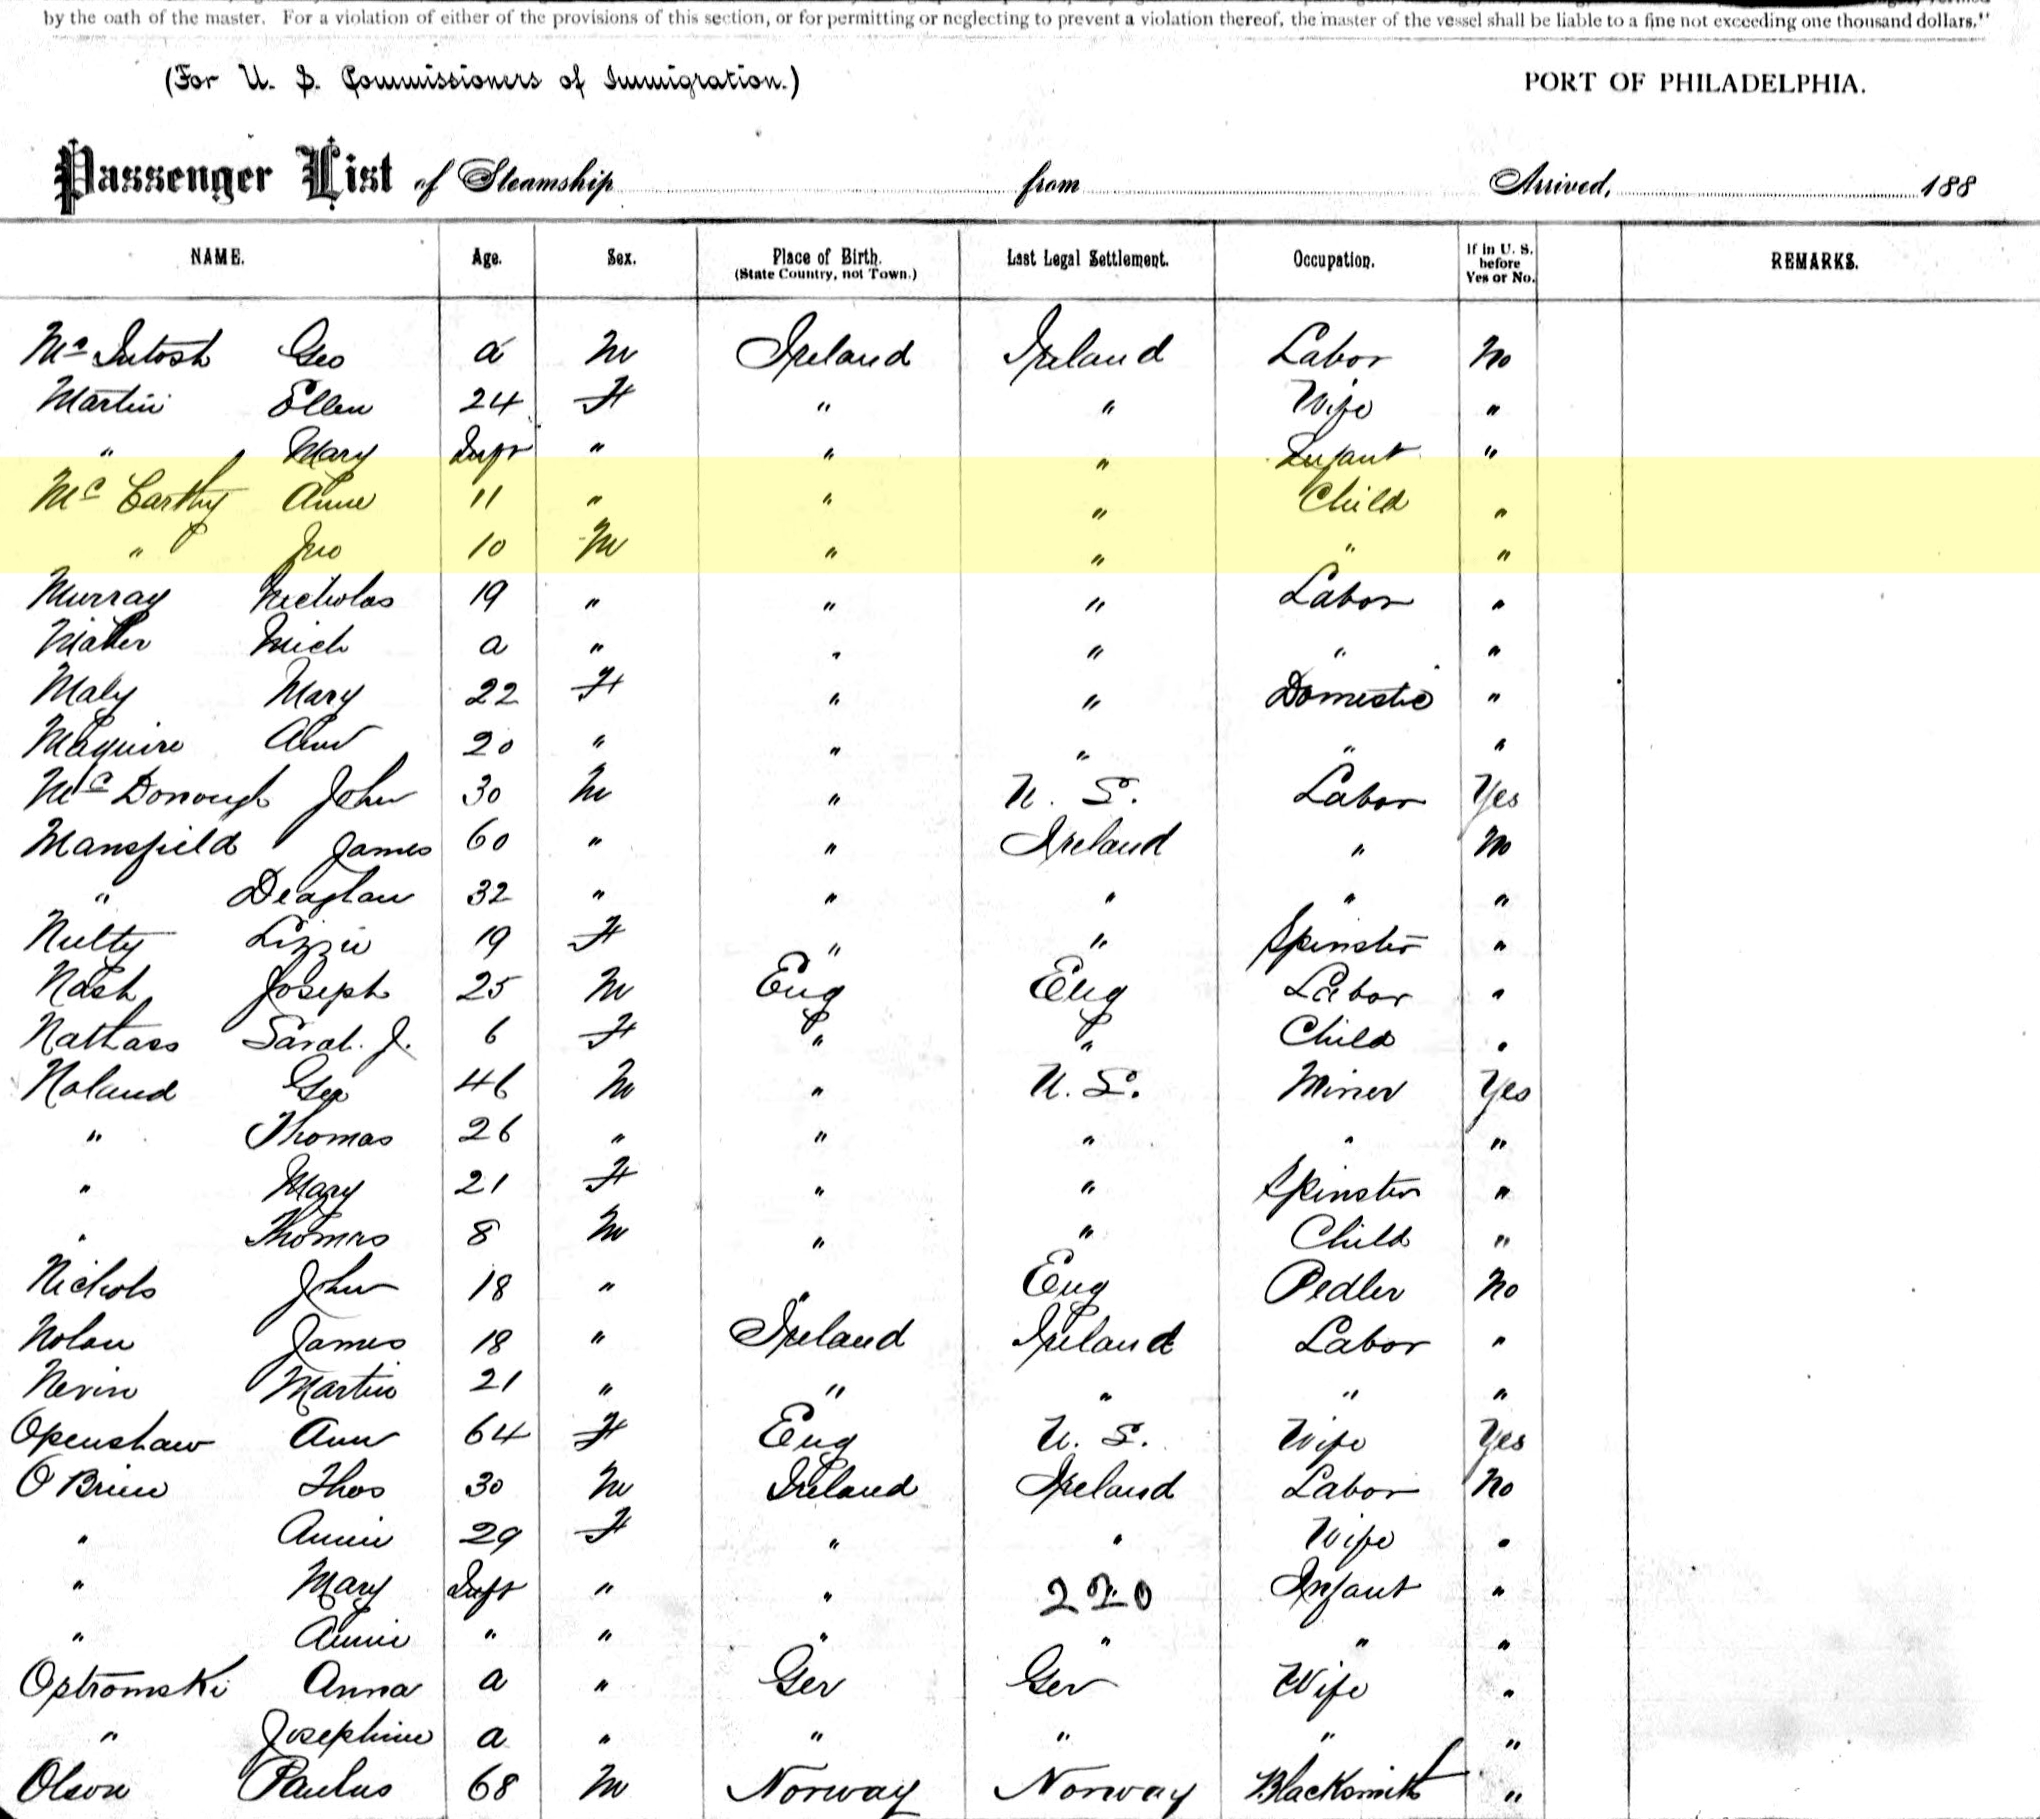 by the oath of the master. For a violation of either of the provisions of this section, or for permitting or neglecting to prevent a violation thereof, the master of the vessel shall be liable to a fine not exceeding one thousand dollars."
(For U. S. Commissioners of Immigration.)
PORT OF PHILADELPHIA.
Passenger List of Steamship from Arrived, 188
NAME. Age. Sex. Place of Birth. (State Country, not Town.) Last Legal Settlement. Occupation. If in U. S. before Yes or No. REMARKS.
Mc Intosh Geo a M Ireland Ireland Labor No
Martin Ellen 24 F " " Wife "
" Mary Inft " " " Infant "
Mc Carthy Anne 11 " " " Child "
" Jno 10 M " " " "
Murray Nicholas 19 " " " Labor "
Maher Mich a " " " " "
Maly Mary 22 F " " Domestic "
Maguire Ann 20 " " " " "
Mc Donough John 30 M " U. S. Labor Yes
Mansfield James 60 " " Ireland " No
" Deaglan 32 " " " " "
Nulty Lizzie 19 F " " Spinster "
Nash Joseph 25 M Eng Eng Labor "
Nattrass Sarah J. 6 F " " Child "
Noland Geo 46 M " U. S. Miner Yes
" Thomas 26 " " " " "
" Mary 21 F " " Spinster "
" Thomas 8 M " " Child "
Nichols John 18 " " Eng Pedler No
Nolan James 18 " Ireland Ireland Labor "
Nevin Martin 21 " " " " "
Openshaw Ann 64 F Eng U. S. Wife Yes
O'Brien Thos 30 M Ireland Ireland Labor No
" Annie 29 F " " Wife "
" Mary Inft " " 220 Infant "
" Annie " " " " " "
Ostromski Anna a " Ger Ger Wife "
" Josephine a " " " " "
Olson Paulus 68 M Norway Norway Blacksmith "